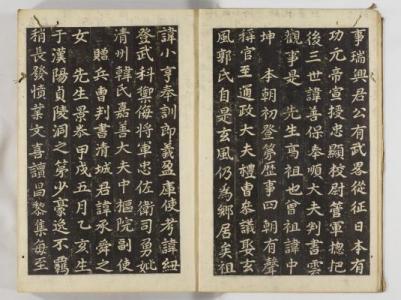 事瑞興君公有武畧從征日本有
功元帝宣授忠顯校尉管軍摠把
後三世諱善保奉順大夫判書雲
觀事是 先生高祖也曾祖諱中
坤 本朝初登第歷事四朝有聲
稱官至通政大夫禮曹叅議娶玄
風郭氏自是玄風仍為鄉居矣祖
諱小亨奉訓郎義盈庫使考諱紐
登武科禦侮將軍忠佐衛司勇妣
清州韓氏嘉善大夫中樞院副使
贈兵曹判書清城君諱承舜之
女 先生景泰甲戌五月乙亥生
于漢陽貞陵洞之第少豪逸不羈
稍長發憤業文喜讀昌黎集每至